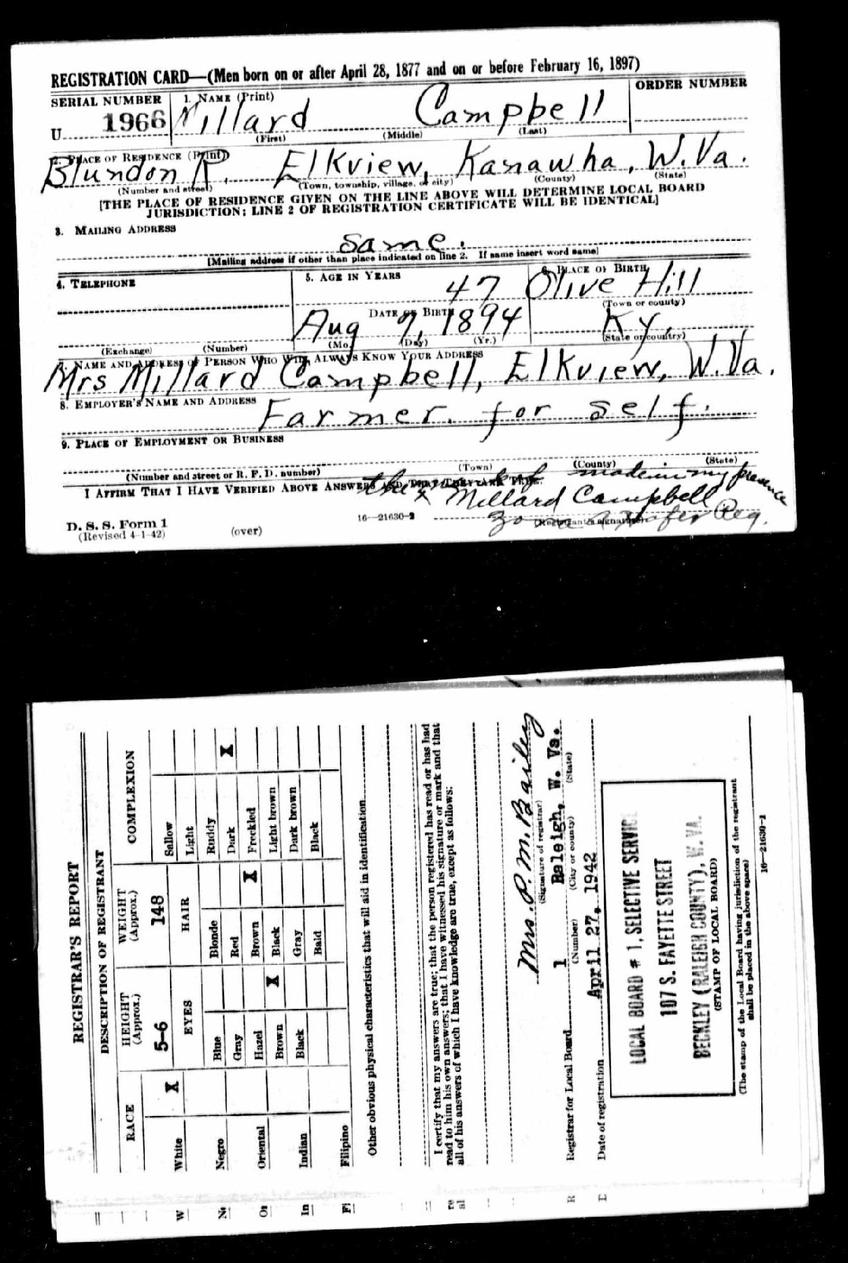 REGISTRATION CARD—(Men born on or after April 28, 1877 and on or before February 16, 1897)
SERIAL NUMBER 1. NAME (Print) ORDER NUMBER
U 1966 Millard Campbell
(First) (Middle) (Last)
2. PLACE OF RESIDENCE (Print)
Blundon R. Elkview, Kanawha, W. Va.
(Number and street) (Town, township, village, or city) (County) (State)
[THE PLACE OF RESIDENCE GIVEN ON THE LINE ABOVE WILL DETERMINE LOCAL BOARD
JURISDICTION; LINE 2 OF REGISTRATION CERTIFICATE WILL BE IDENTICAL]
3. MAILING ADDRESS
same.
[Mailing address if other than place indicated on line 2. If same insert word same]
4. TELEPHONE 5. AGE IN YEARS 6. PLACE OF BIRTH
47 Olive Hill
DATE OF BIRTH (Town or county)
Aug 9, 1894 Ky.
(Exchange) (Number) (Mo.) (Day) (Yr.) (State or country)
7. NAME AND ADDRESS OF PERSON WHO WILL ALWAYS KNOW YOUR ADDRESS
Mrs Millard Campbell, Elkview, W. Va.
8. EMPLOYER'S NAME AND ADDRESS
Farmer. for self.
9. PLACE OF EMPLOYMENT OR BUSINESS
(Number and street or R. F. D. number) (Town) (County) (State)
I AFFIRM THAT I HAVE VERIFIED ABOVE ANSWERS AND THAT THEY ARE TRUE.
the mark of made in my presence
x Millard Campbell
D. S. S. Form 1
(Revised 4-1-42) (over) 16—21630-2 (Registrant's signature)
Reg.
REGISTRAR'S REPORT
DESCRIPTION OF REGISTRANT
RACE HEIGHT (Approx.) WEIGHT (Approx.) COMPLEXION
White X 5-6 148 Sallow
EYES HAIR Light
Negro Blue Blonde Ruddy
Gray Red Dark X
Oriental Hazel Brown X Freckled
Brown X Black Light brown
Indian Black Gray Dark brown
Bald Black
Filipino
Other obvious physical characteristics that will aid in identification
I certify that my answers are true; that the person registered has read or has had
read to him his own answers; that I have witnessed his signature or mark and that
all of his answers of which I have knowledge are true, except as follows:
Mrs. P. M. Bailey
(Signature of registrar)
Registrar for Local Board 1 Raleigh, W. Va.
(Number) (City or county) (State)
Date of registration April 27, 1942
LOCAL BOARD # 1, SELECTIVE SERVICE
107 S. FAYETTE STREET
BECKLEY (RALEIGH COUNTY), W. VA.
(STAMP OF LOCAL BOARD)
(The stamp of the Local Board having jurisdiction of the registrant
shall be placed in the above space)
16—21630-1